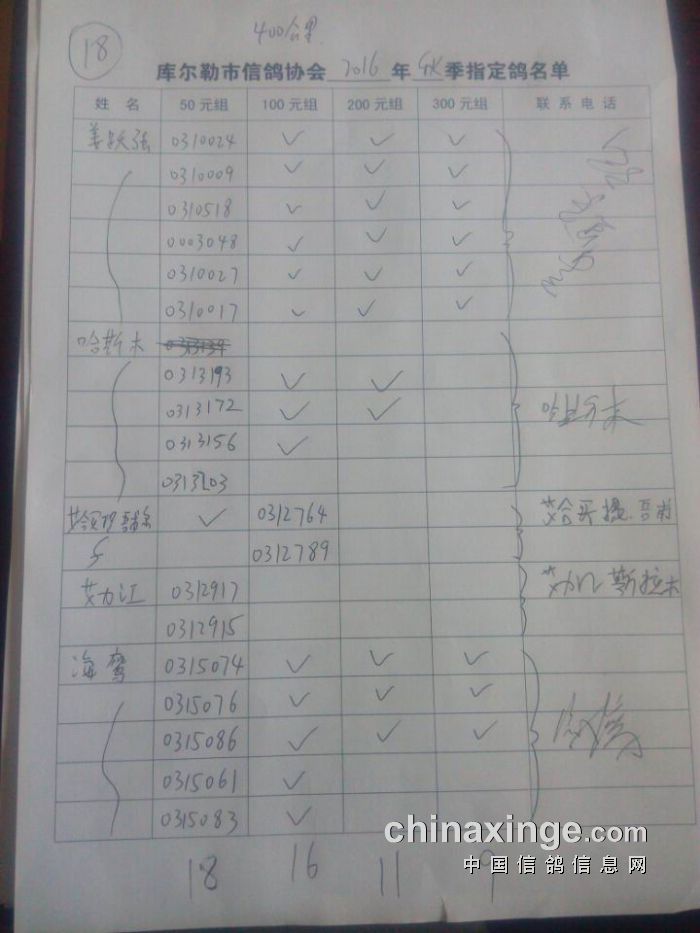 18
400公里
库尔勒市信鸽协会 2016 年 秋 季指定鸽名单
姓 名 50元组 100元组 200元组 300元组 联系电话
姜跃强 0310024 ✓ ✓ ✓
0310009 ✓ ✓ ✓
0310518 ✓ ✓ ✓
0003048 ✓ ✓ ✓
0310027 ✓ ✓ ✓
0310017 ✓ ✓ ✓
哈斯木
0313193 ✓ ✓
0313172 ✓ ✓
0313156 ✓
0313203
✓ 0312764
0312789
艾力江 0312917
0312915
海鹰 0315074 ✓ ✓ ✓
0315076 ✓ ✓ ✓
0315086 ✓ ✓ ✓
0315061 ✓
0315083 ✓
18 16 11 9
chinaxinge.com
中国信鸽信息网